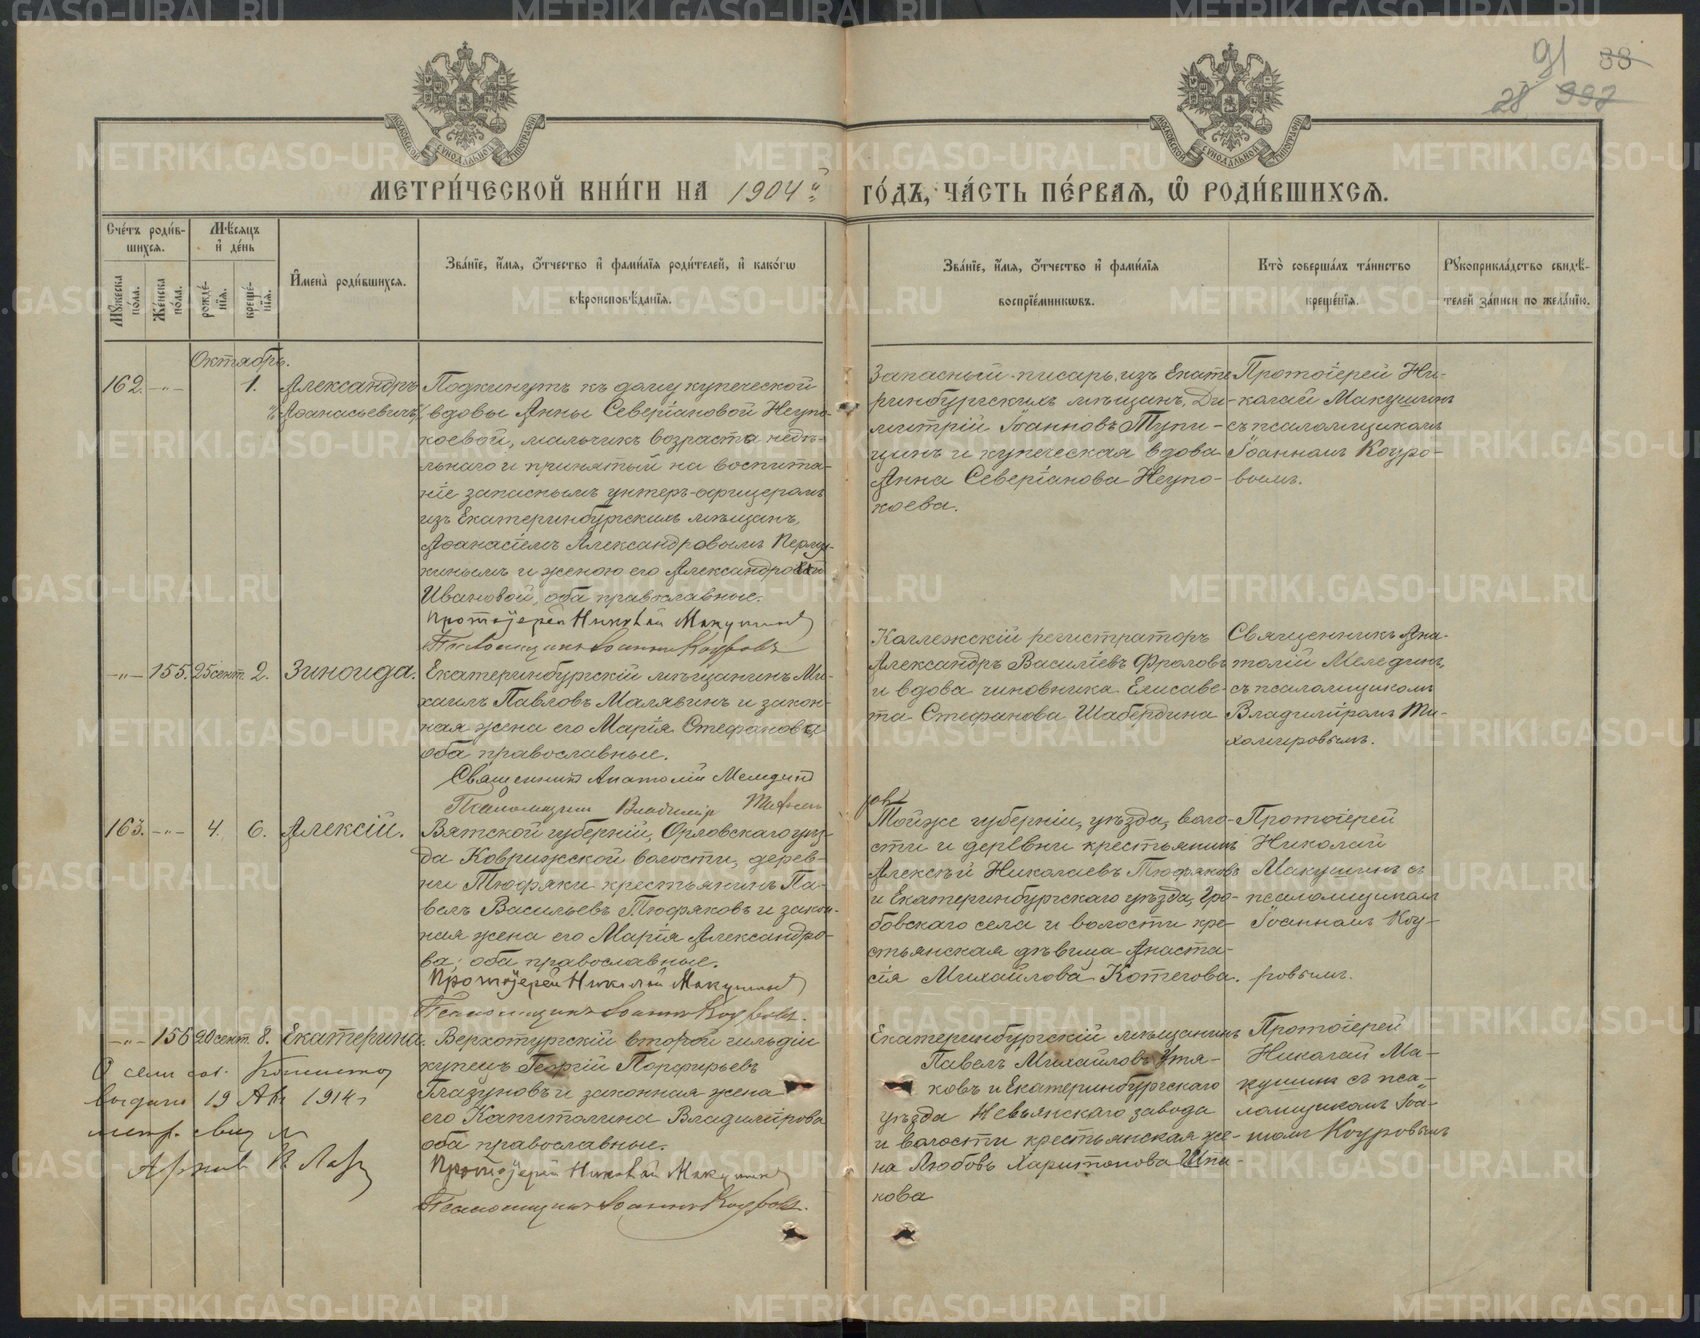 91 33
28 992
МОСКОВСКОЙ СѴНОДАЛЬНОЙ ТИПОГРАФІИ
МОСКОВСКОЙ СѴНОДАЛЬНОЙ ТИПОГРАФІИ
МЕТРИ́ЧЕСКОЙ КНИ́ГИ НА 1904й ГО́ДЪ, ЧА́СТЬ ПЕ́РВАЯ, Ѡ҆ РОДИ́ВШИХСЯ.
Сче́тъ роди́вшихся.
Мꙋ́жеска пола.
Же́нска по́ла.
Мѣ́сяцъ и҆ де́нь
рожде́нїя.
креще́нїя.
И҆мена̀ роди́вшихся.
Зва́нїе, и҆́мя, ѻ҆́тчество и҆ фами́лїя роди́телей, и҆ како́гѡ
вѣроисповѣ́данїя.
Зва́нїе, и҆́мя, ѻ҆́тчество и҆ фами́лїя
воспрїе́мникѡвъ.
Кто̀ соверша́лъ та́инство
креще́нїя.
Рꙋкоприкла́дство свидѣ́-
телей за́писи по жела́нїю.
Октябрь.
162. -"- 1. Александръ
Аѳанасьевичъ
Подкинутъ къ дому купеческой
вдовы Анны Северіановой Неупо-
коевой, мальчикъ возраста недѣ-
льнаго и принятый на воспита-
ніе запаснымъ унтеръ-офицеромъ
изъ Екатеринбургскихъ мѣщанъ,
Аѳанасіемъ Александровымъ
и женою его Александрой
Ивановой, оба православные.
Протоіерей Николай Макушинъ
Псаломщикъ Іоаннъ Коуровъ
Запасный писарь, изъ Екате-
ринбургскихъ мѣщанъ, Ди-
митрій Іоанновъ Тупи-
цинъ и купеческая вдова
Анна Северіанова Неупо-
коева.
Протоіерей Ни-
колай Макушинъ
съ псаломщикомъ
Іоанномъ Коуро-
вымъ.
-"- 155. 25 сент. 2. Зиноида.
Екатеринбургскій мѣщанинъ Ми-
хаилъ Павловъ Малявинъ и закон-
ная жена его Марія Стефанова,
оба православные.
Священникъ Анатолій Меледин
Псаломщикъ Владимір
Коллежскій регистраторъ
Александръ Василіевъ Фроловъ
и вдова чиновника Елисаве-
та Стефанова Шабердина
Священникъ Ана-
толій Меледин,
съ псаломщикомъ
Владиміромъ Ти-
хомировымъ.
163. -"- 4. 6. Алексій.
Вятской губерніи, Орловскаго уѣз-
да Коврижской волости, дерев-
ни Тюфяки крестьянинъ Па-
велъ Васильевъ Тюфяковъ и закон-
ная жена его Марія Александро-
ва, оба православные.
Протоіерей Николай Макушинъ
Псаломщикъ Іоаннъ Коуровъ.
Той же губерніи, уѣзда, воло-
сти и деревни крестьянинъ
Алексѣй Николаевъ Тюфяковъ
и Екатеринбургскаго уѣзда, Гро-
бовскаго села и волости кре-
стьянская дѣвица Анаста-
сія Михайлова Котегова.
Протоіерей
Николай
Макушинъ съ
псаломщикомъ
Іоанномъ Коу-
ровымъ.
-"- 156 20 сент. 8. Екатерина.
Верхотурскій второй гильдіи
купецъ Георгій Порфирьевъ
Глазуновъ и законная жена
его Капитолина Владимірова
оба православные.
Протоіерей Николай Макушинъ
Псаломщикъ Іоаннъ Коуровъ.
Екатеринбургскій мѣщанинъ
Павелъ Михайловъ Утя-
ковъ и Екатеринбургскаго
уѣзда Невьянскаго завода
и волости крестьянская же-
на Любовь Харитонова
Протоіерей
Николай Ма-
кушинъ съ пса-
ломщикомъ Іоа-
нномъ Коуровымъ
О семъ
выдано 19 Авг 1914 г
метр. свид №
METRIKI.GASO-URAL.RU